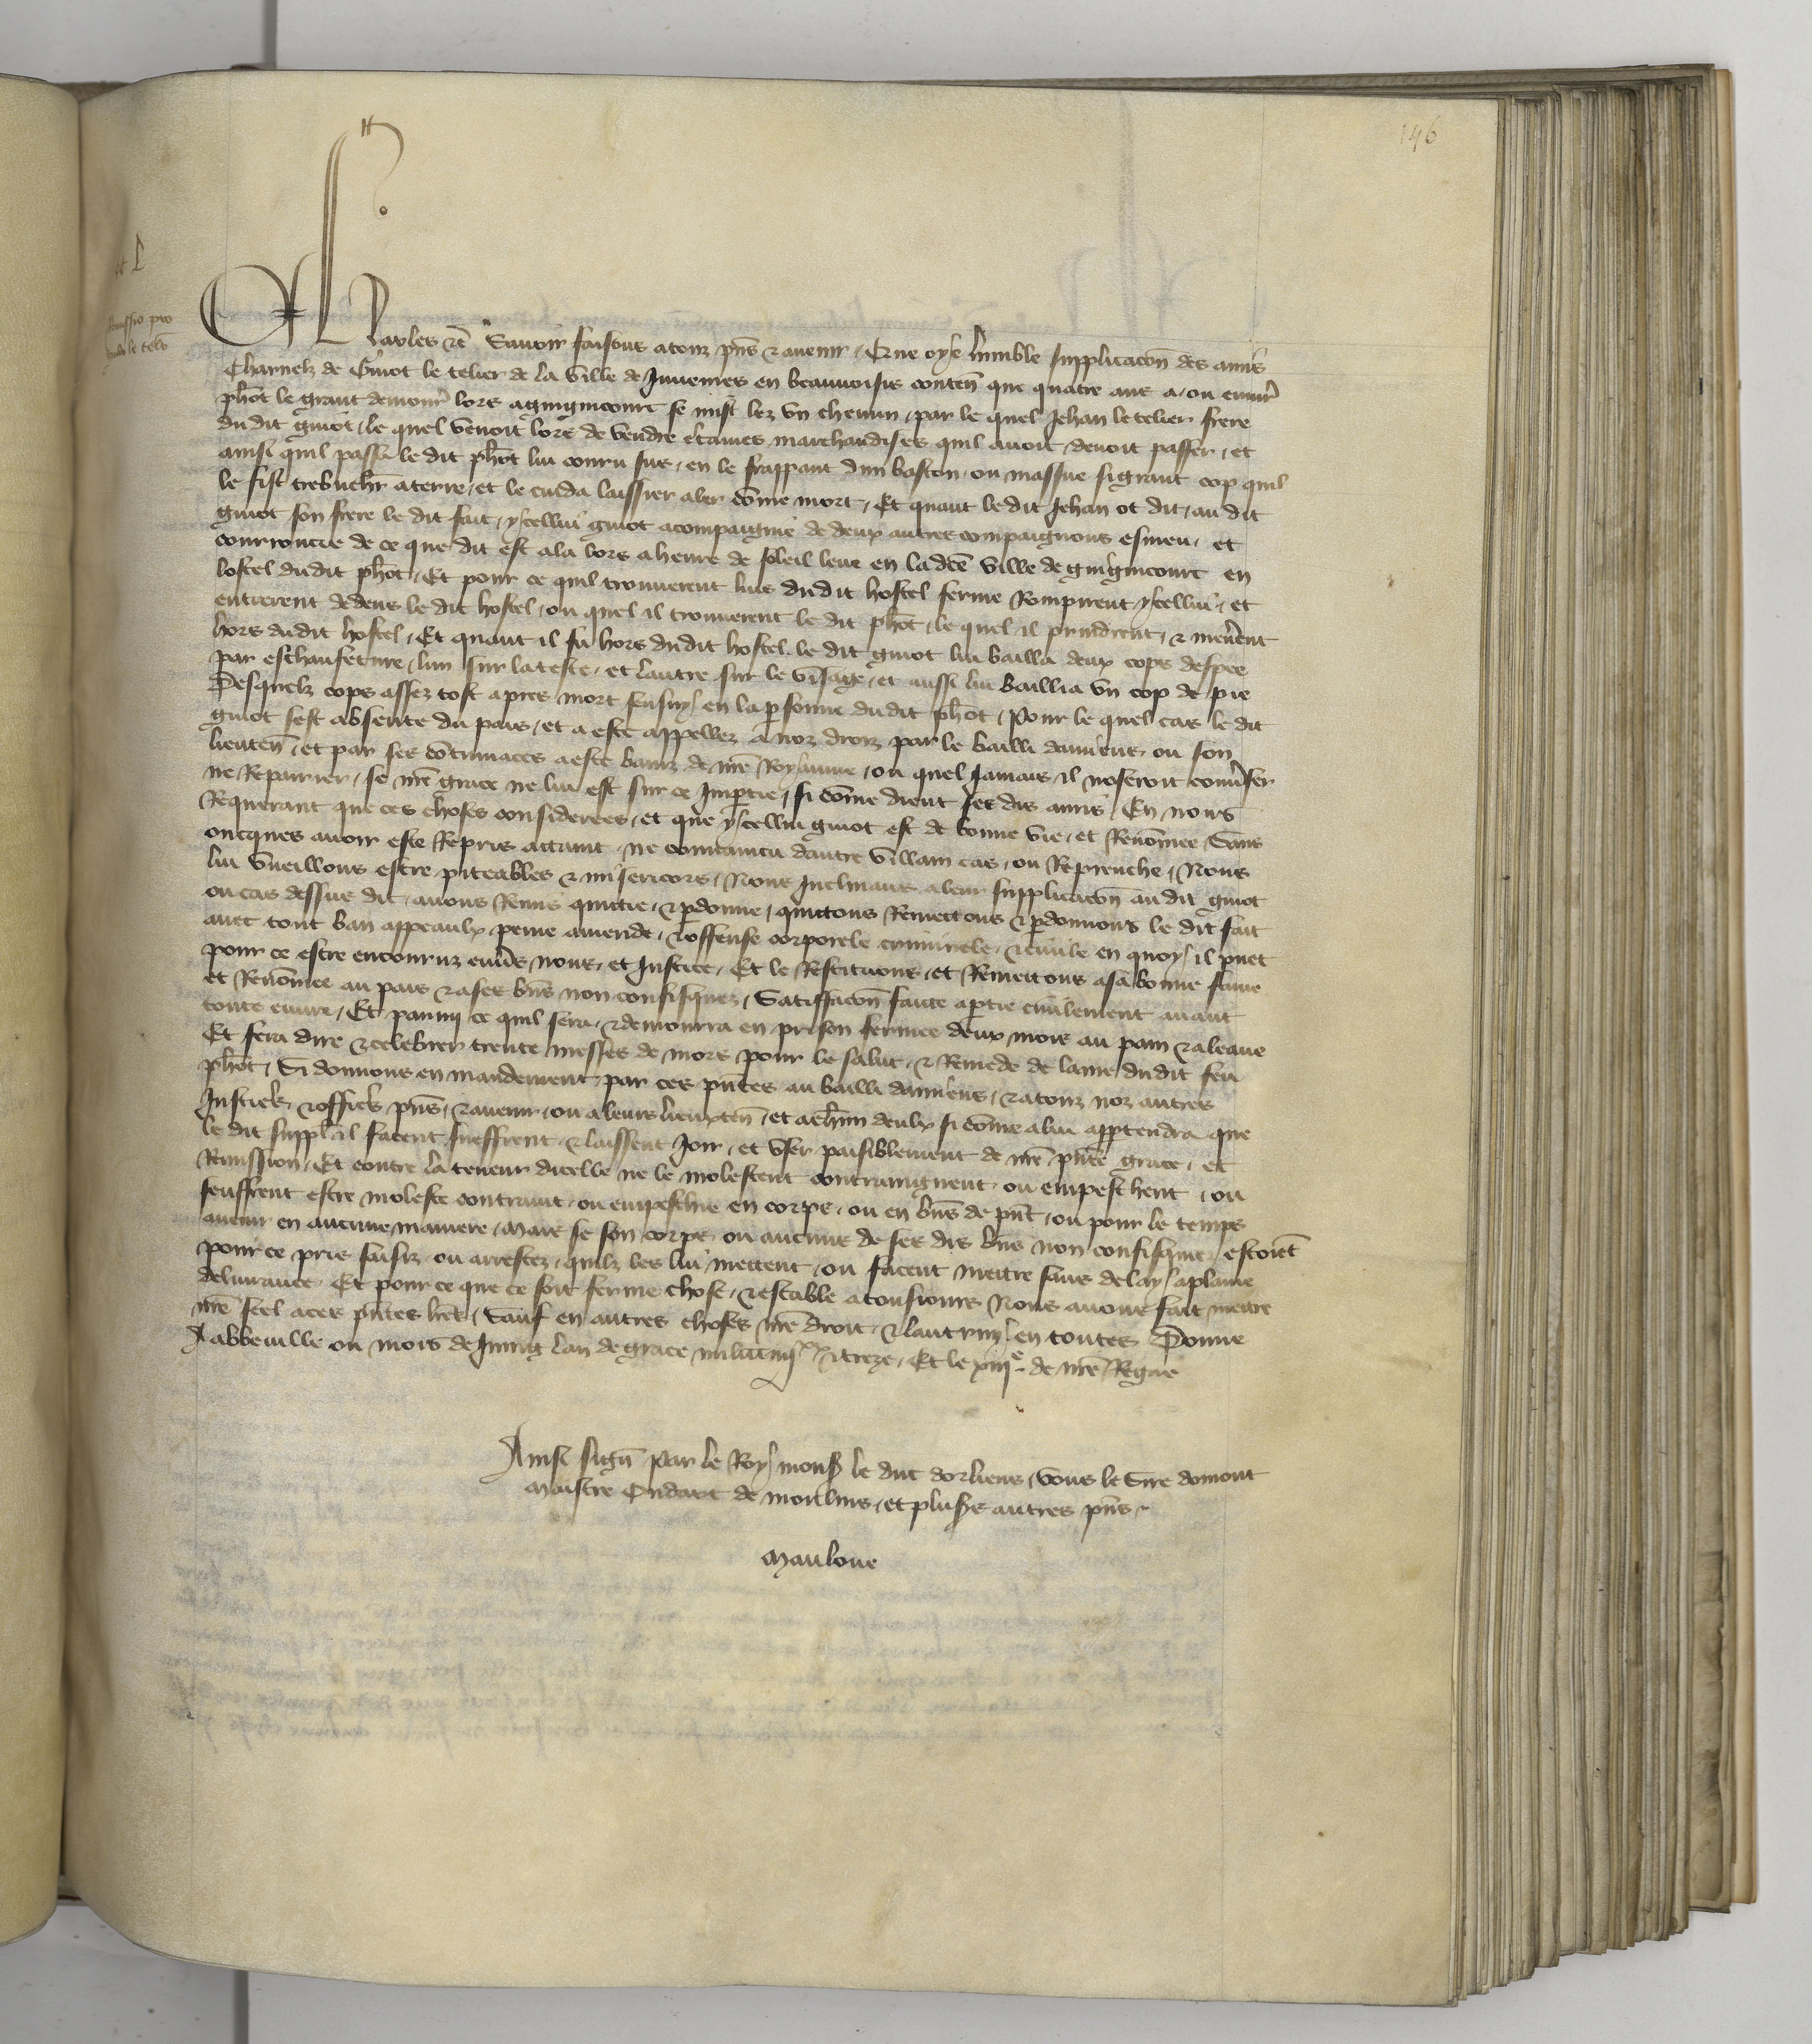 146
Charles etc̄ Savoir faisons a touz pn̄s & avenir / Que oye lumble supplicacōn des amis
Charnelz de Guiot le telier de la ville de en beauvoisis conten̄ que quatre ans a / ou environ
ph̄ot le grant demour̄ lors a guignicourt se mist lez un chemin / par le quel Jehan le telier frere
du dit guiot / le quel venoit lors de vendre c̄taines marchandises quil avoit / devoit passer / et
ainsi quil passa le dit ph̄ot lui couru sus / en le frappant dun baston / ou massue si grant cop quil
le fist trebuch̄r a terre / et le cuida laissier aler cōme mort / Et quant le dit Jehan ot dit / au dit
guiot son frere le dit fait / ycellui guiot acompaignie de deux autres compaignons esmeu / et
courroucie de ce que dit est ala lors a heure de soleil leve en la dcē ville de guignicourt en
lostel du dit ph̄ot / Et pour ce quil trouverent luis du dit hostel ferme Rompirent ycellui / et
entrerent dedens le dit hostel / ou quel il trouverent le dit ph̄ot / le quel il prindrent / & menerent
hors du dit hostel / Et quant il fu hors du dit hostel le dit guiot lui bailla deux cops despee
par eschaufeture / lun sur la teste / et lautre sur le visage / et aussi lui baillia un cop de pie
Desquelz cops assez tost apres mort sensuy en la p̱sonne du dit ph̄ot / Pour le quel cas le dit
guiot sest absente du pais / et a este appellez a noz droiz par le bailli damiens ou son
lieuten̄ / et par ses cōtumaces a este baniz de nr̄e Royaume / ou quel Jamais il noseroit conv̄ser
ne Repairier / se nr̄e grace ne lui est sur ce Imp̱tie / si cōme dient ses dis amis / En nous
Requerant que ces choses considerees / et que ycellui guiot est de bonne vie / et Renōmee / Sans
oncques avoir este Repris attaint / ne convaincu dautre villain cas / ou Reprouche / Nous
lui vueillons estre piteables & misericors / Nous Inclinans a leur supplicacōn au dit guiot
ou cas dessus dit / avons Remis quictie / & p̱donne / quictons Remettons & p̱donnons le dit fait
avec tout ban appeaulx peine amende / & offense corporele criminele / & civile en quoy il puet
pour ce estre encouruz env̄s nous / et Justice / Et le Restituons / et Remettons a sa bonne fame
et Renōmee au pais & a ses bn̄s non confisquez / Satisfacōn faicte a p̱tie civilement avant
toute euvre / Et parmi ce quil sera / & demourra en prison fermee deux mois au pain & a leaue
Et fera dire & celebrer trente messes de mors pour le salut / & Remede de lame du dit feu
ph̄ot / Si donnons en mandement par ces pn̄tes au bailli damiens / & a touz noz autres
Justic̄s / & offic̄s pn̄s / & avenir / ou a leurs lieuxten̄ / et a ch̄un deulx si cōme a lui app̱tendra que
le dit suppl̄ il facent / sueffrent & laissent Joir / et user paisiblement de nr̄e pn̄te grace / et
Remission / Et contre la teneur dicelle ne le molestent contraingnent / ou empeschent / ou
seuffrent estre moleste contraint / ou empeschie en corps / ou en bn̄s de pn̄t / ou pour le temps
avenir en aucune maniere / Mais se son corps ou aucuns de ses dis bn̄s non confisquez estoiēt
pour ce pris saisiz / ou arrestez / quilz les lui mettent / ou facent mettre sans delay a plaine
delivrance / Et pour ce que ce soit ferme chose / & estable a tousiours Nous avons fait mettre
nr̄e seel a ces pn̄tes lr̄es / Sauf en autres choses nr̄e droit / & lautruy en toutes Donne
A abbeville ou mois de Juing lan de grace mil CCC iiij xx & treze / Et le xiije de nr̄e Regne
Ainsi sign̄ Par le Roy mons̄ le duc dorliens / vous le Sire domont
Maistre Oudart de moulins / et plus̄s autres pn̄s /
Mauloue